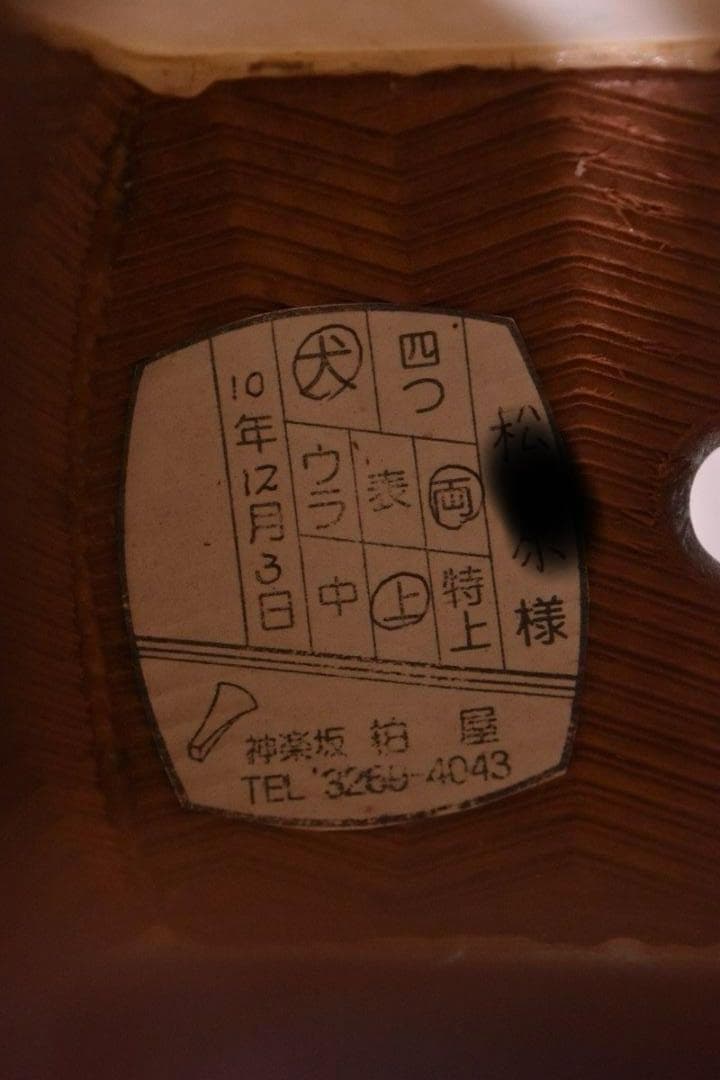 松 様
四つ
犬
両
表
ウラ
特上
上
中
10年12月3日
神楽坂 屋
TEL 3269-4043